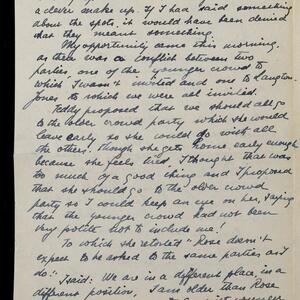 a clever make up. If I had said something
about the spots, it would have been denied
that they meant something.
My opportunity came this morning,
as there was a conflict between two
parties, one of the younger crowd to
which I wasn't invited and one to Langdon
Jones to which we were all invited.
Teddy proposed that we should all go
to the older crowd party which she would
leave early so she could go with all
the others. Though she gets home early enough
because she feels tired, I thought that was
too much of a good thing and I proposed
that she should go to the older crowd
party so I could keep an eye on her, saying
that the younger crowd had not been
very polite not to include me!
To which she retorted "Rose doesn't
expect to be asked to the same parties as I
do." I said: We are in a different place, in a
different position, I am older than Rose
younger